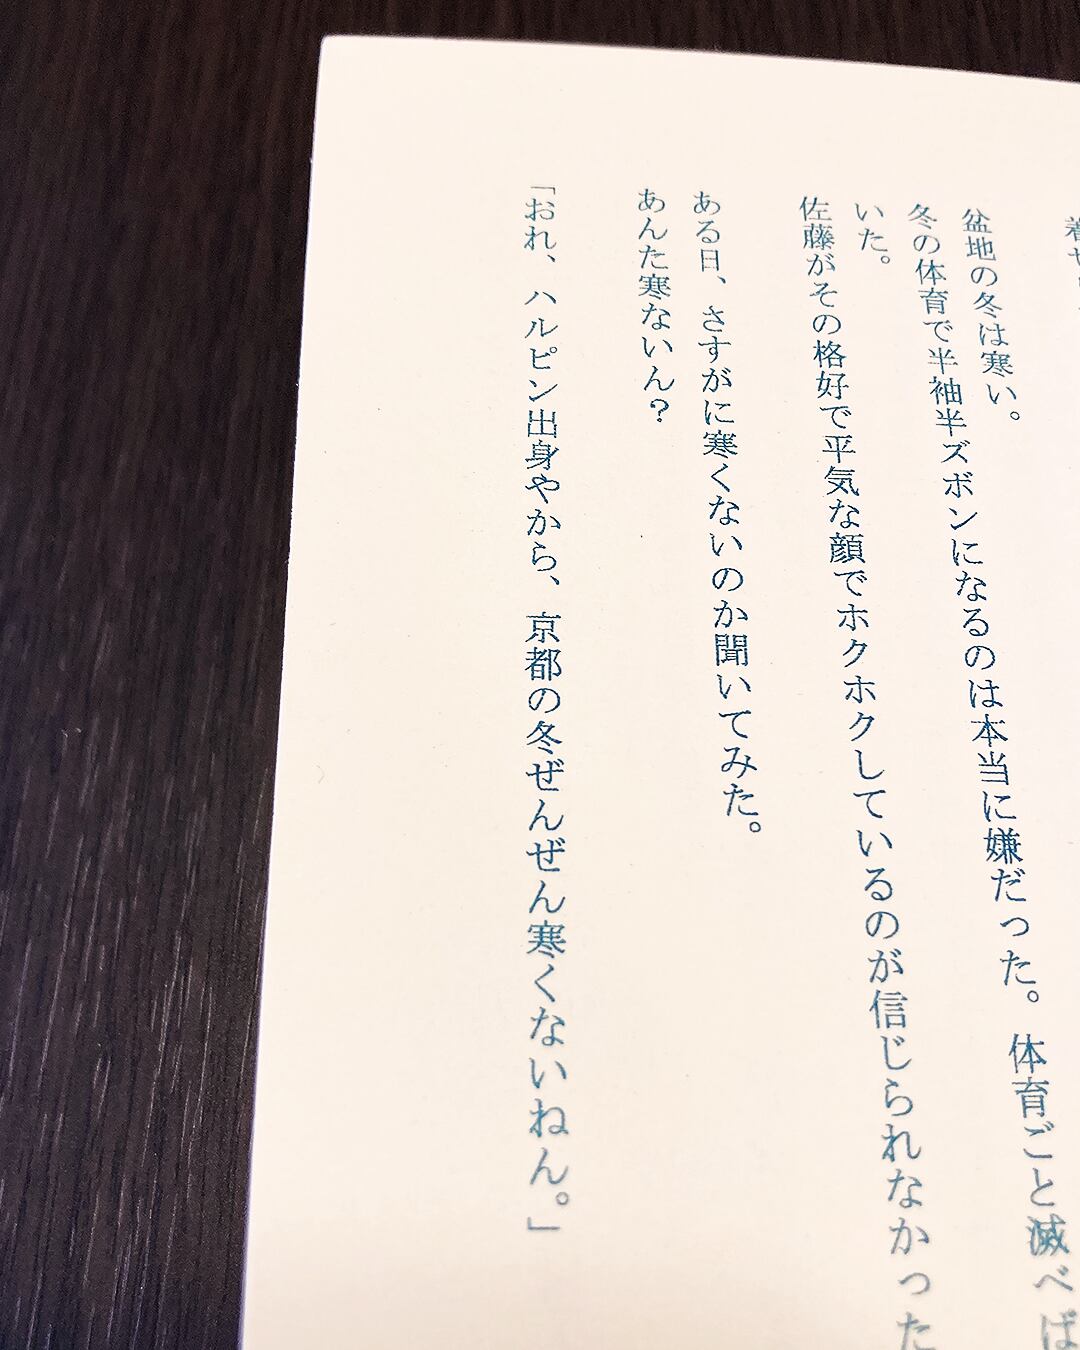 盆地の冬は寒い。
冬の体育で半袖半ズボンになるのは本当に嫌だった。体育ごと滅べば
いた。
佐藤がその格好で平気な顔でホクホクしているのが信じられなかった
ある日、さすがに寒くないのか聞いてみた。
あんた寒ないん？
「おれ、ハルピン出身やから、京都の冬ぜんぜん寒くないねん。」